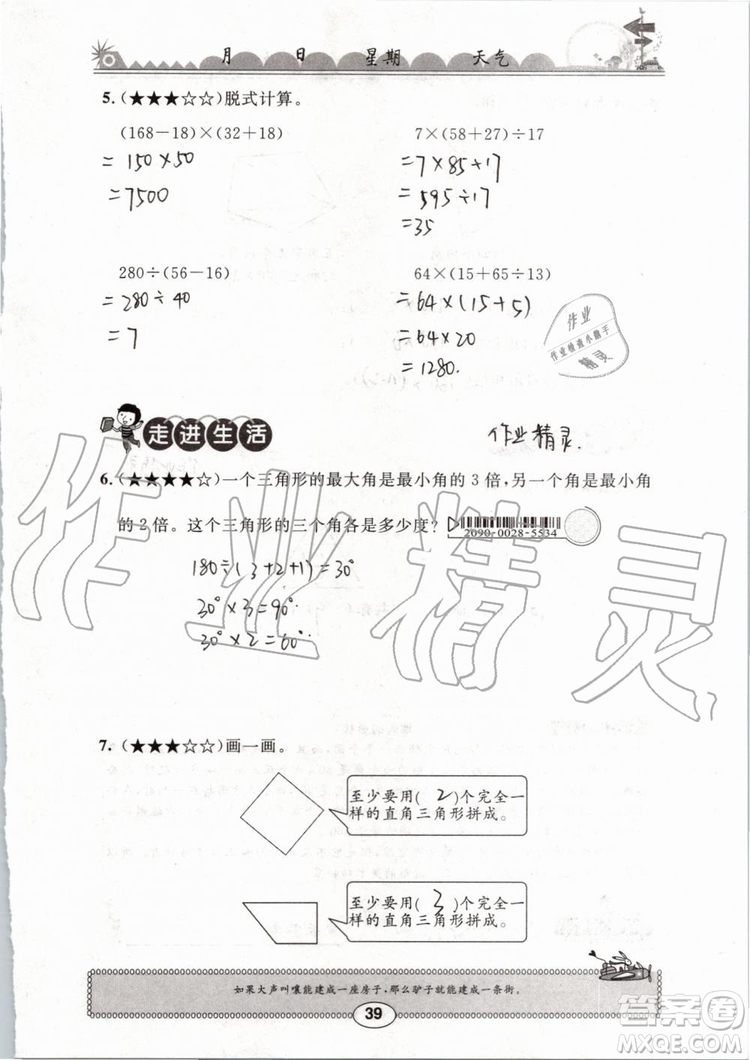 月 日 星期 天气
5.(★★★☆☆)脱式计算。
(168－18)×(32＋18) 7×(58＋27)÷17
= 150×50 = 7×85÷17
= 7500 = 595÷17
= 35
280÷(56－16) 64×(15＋65÷13)
= 280÷40 = 64×(15+5)
= 7 = 64×20
= 1280.
作业
作业检查小助手
精灵
走进生活
作业精灵.
6.(★★★★☆)一个三角形的最大角是最小角的 3 倍,另一个角是最小角
的 2 倍。这个三角形的三个角各是多少度?
2090-0028-5534
180÷(3+2+1)=30°
30°×3=90°
30°×2=60°
作业精灵
7.(★★★☆☆)画一画。
至少要用( 2 )个完全一
样的直角三角形拼成。
至少要用( 3 )个完全一
样的直角三角形拼成。
如果大声叫嚷能建成一座房子,那么驴子就能建成一条街。
39
答案卷